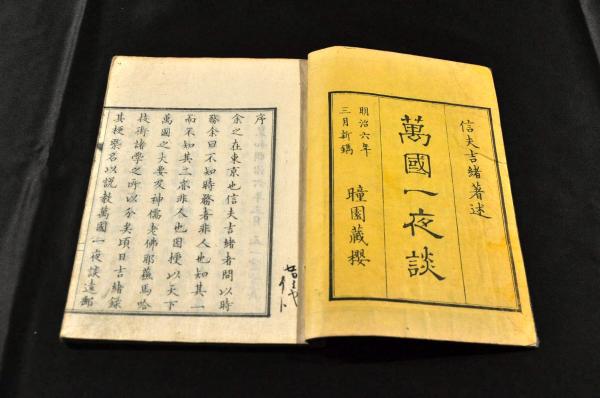 信夫吉緒著述
萬國一夜談
明治六年
三月新鐫
瞳園藏櫻
序
余之在東京也信夫吉緒者問以時
務余曰不知時務者非人也知其一
而不知其二亦非人也因授以天下
萬國之大要及神儒老佛耶蘇馬哈
技術諸學之所以分矣頃日吉緒錄
其梗槩名以說教萬國一夜談遠郵